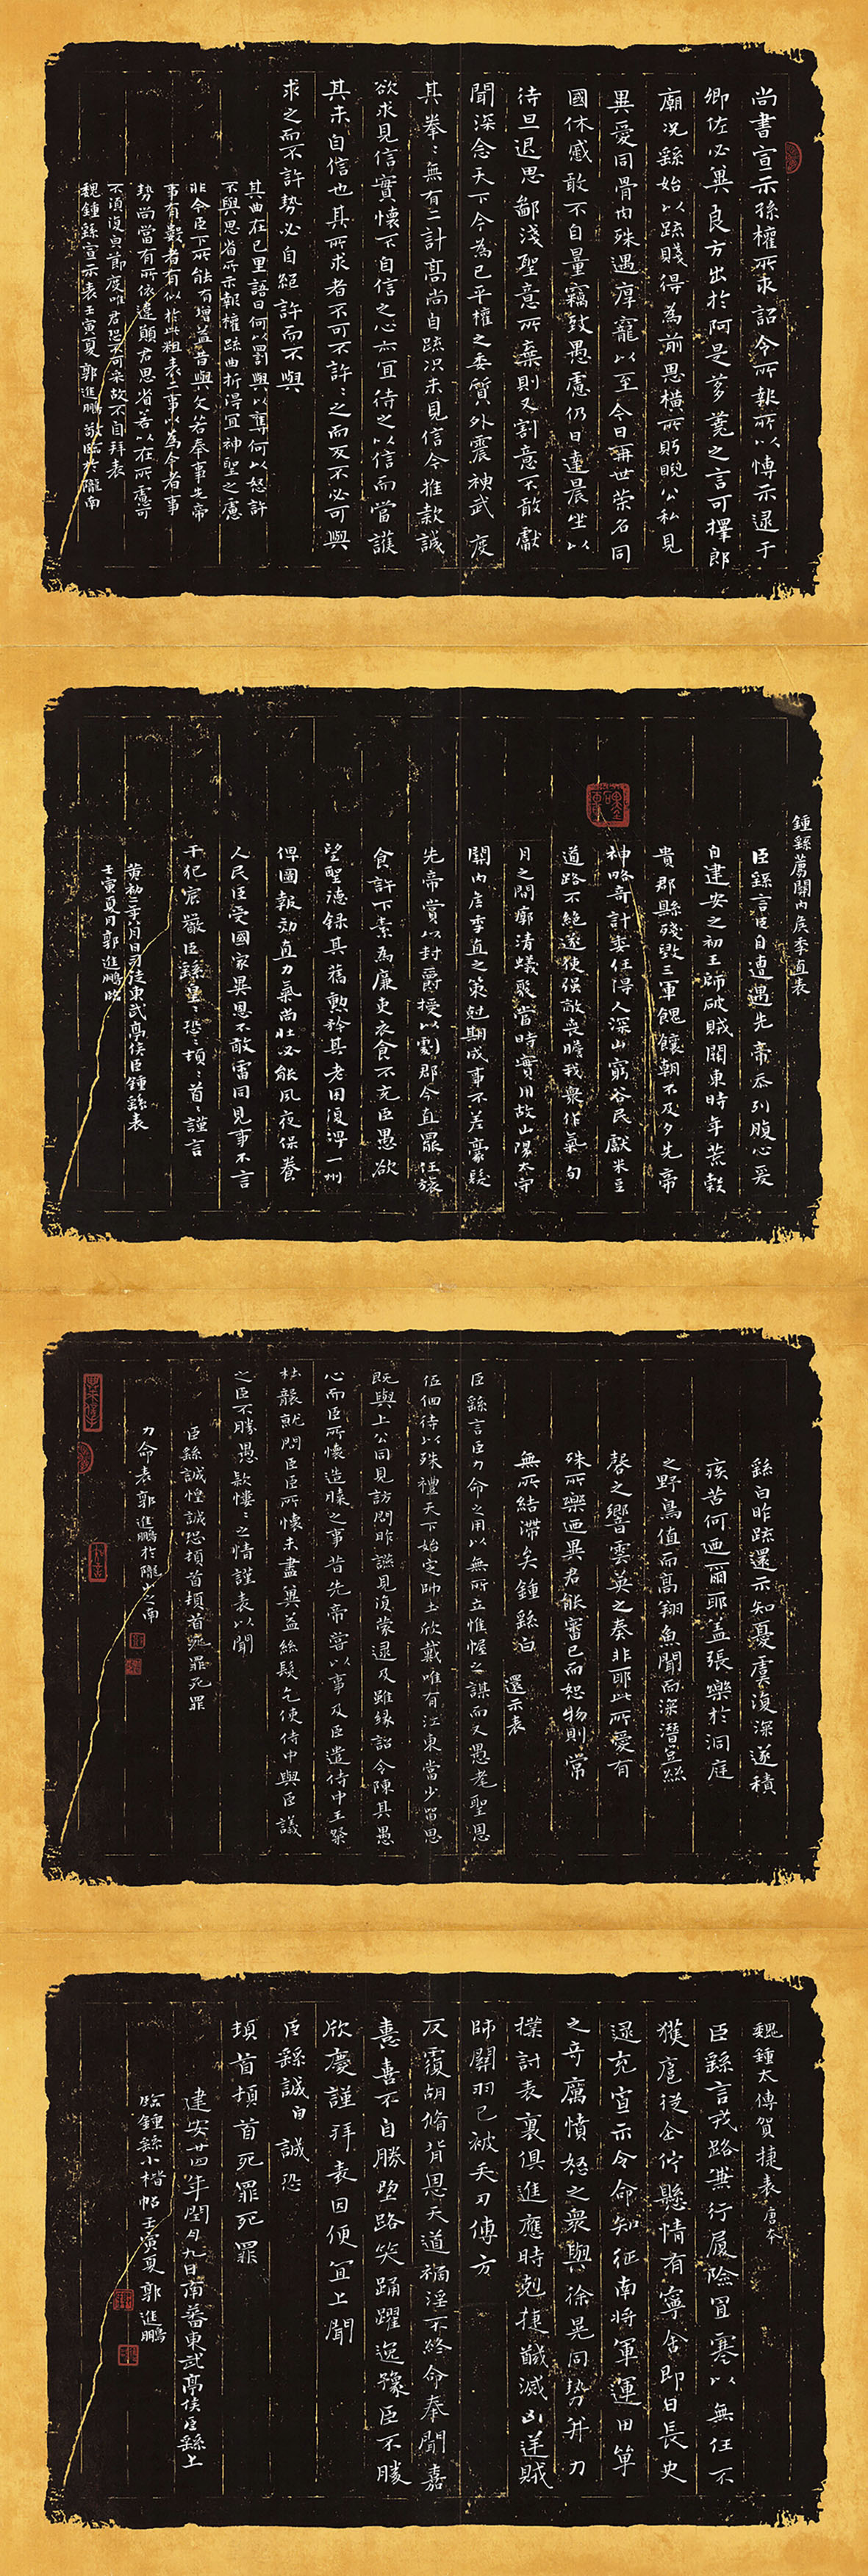 尚書宣示孫權所求詔令所報所以博示逮于
卿佐必冀良方出於阿是芻蕘之言可擇郎
廟況繇始以疏賤得為前恩橫所盻睨公私見
異愛同骨肉殊遇厚寵以至今日再世榮名同
國休慼敢不自量竊致愚慮仍日達晨坐以
待旦退思鄙淺聖意所棄則又割意不敢獻
聞深念天下今為已平權之委質外震神武度
其拳〻無有二計高尚自疏況未見信今推款誠
欲求見信實懷不自信之心亦宜待之以信而當護
其未自信也其所求者不可不許〻之而反不必可與
求之而不許勢必自絕許而不與
其曲在己里語曰何以罰與以奪何以怒許
不與思省所示報權疏曲折得宜神聖之慮
非今臣下所能有增益昔與文若奉事先帝
事有數者有似於此粗表二事以為今者事
勢尚當有所依違願君思省若以在所慮可
不須復白節度唯君恐不可采故不自拜表
魏鍾繇宣示表壬寅夏郭進鵬敬臨於隴南
鍾繇薦關內侯季直表
臣繇言臣自遭遇先帝忝列腹心爰
自建安之初王師破賊關東時年荒穀
貴郡縣殘毀三軍餽饟朝不及夕先帝
神略奇計委任得人深山窮谷民獻米豆
道路不絕遂使強敵喪膽我眾作氣旬
月之間廓清蟻聚當時實用故山陽太守
關內侯季直之策剋期成事不差豪髮
先帝賞以封爵授以劇郡今直罷任旅
食許下素為廉吏衣食不充臣愚欲
望聖德錄其舊勳矜其老困復俾一州
俾圖報効直力氣尚壯必能夙夜保養
人民臣受國家異恩不敢雷同見事不言
干犯宸嚴臣繇皇〻恐〻頓〻首〻謹言
黃初二年八月日司徒東武亭侯臣鍾繇表
壬寅夏月郭進鵬臨
繇白昨疏還示知憂虞復深遂積
疾苦何迺爾耶蓋張樂於洞庭
之野鳥值而高翔魚聞而深潛豈絲
磬之響雲英之奏非耶此所愛有
殊所樂迺異君能審己而恕物則常
無所結滯矣鍾繇白 還示表
臣繇言臣力命之用以無所立惟幄之謀而又愚耄聖恩
低佪待以殊禮天下始定帥土欣戴唯有江東當少留思
既與上公同見訪問昨讌見復蒙逮及雖緣詔令陳其愚
心而臣所懷造膝之事昔先帝嘗以事及臣遣侍中王粲
杜襲就問臣臣所懷未盡冀益絲髮乞使侍中與臣議
之臣不勝愚款慺〻之情謹表以聞
臣繇誠惶誠恐頓首頓首死罪死罪
力命表郭進鵬於隴山之南
魏鍾太傅賀捷表唐本
臣繇言戎路兼行履險冒寒以無任不
獲扈從企佇懸情有寧舍即日長史
逯充宣示令命知征南將軍運田單
之奇厲憤怒之眾與徐晃同勢并力
撲討表裏俱進應時剋捷馘滅凶逆賊
帥關羽已被矢刃傅方
反覆胡脩背恩天道禍淫不終命奉聞嘉
憙喜不自勝望路笑踊躍逸豫臣不勝
欣慶謹拜表因便宜上聞
臣繇誠白誠恐
頓首頓首死罪死罪
建安廿四年閏月九日南蕃東武亭侯臣繇上
臨鍾繇小楷帖壬寅夏郭進鵬